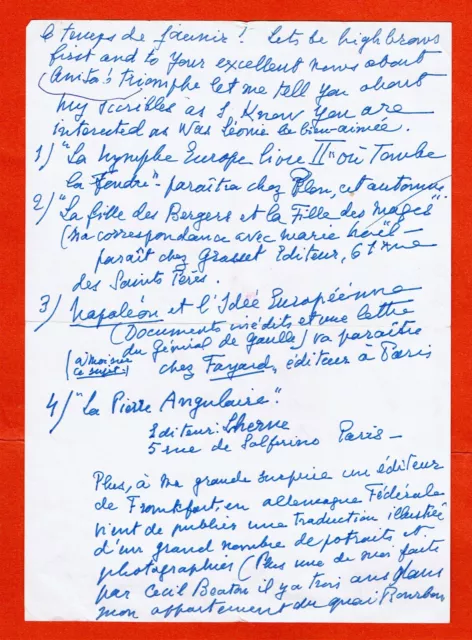 le temps de finir! Lets be high brows
first and to your excellent news about
(Anita's triomphe let me tell you about
my scribles as I know you are
interested as was Léonie la bien-aimée.
1) "La nymphe Europe livre II" "où Tombe
la Foudre" - paraîtra chez Plon, cet automne.
2) "La fille des Bergers et la Fille des Mages"
(ma correspondance avec Marie Noël -
paraît chez Grasset Editeur, 61 rue
des Saints Pères.
3) Napoléon et l'Idée Européenne
(Documents inédits et une lettre
du Général de Gaulle) va paraître
(à moi sur
ce sujet)
chez Fayard, éditeur à Paris
4) "La Pierre Angulaire".
Editeur: Lherne
5 rue de Solferino Paris -
Plus, à ma grande surprise un éditeur
de Frankfort, en Allemagne Fédérale
vient de publier une traduction illustrée
d'un grand nombre de potraits et
photographies (Plus une de moi faite
par Cecil Beaton il y a trois ans dans
mon appartement du quai Bourbon